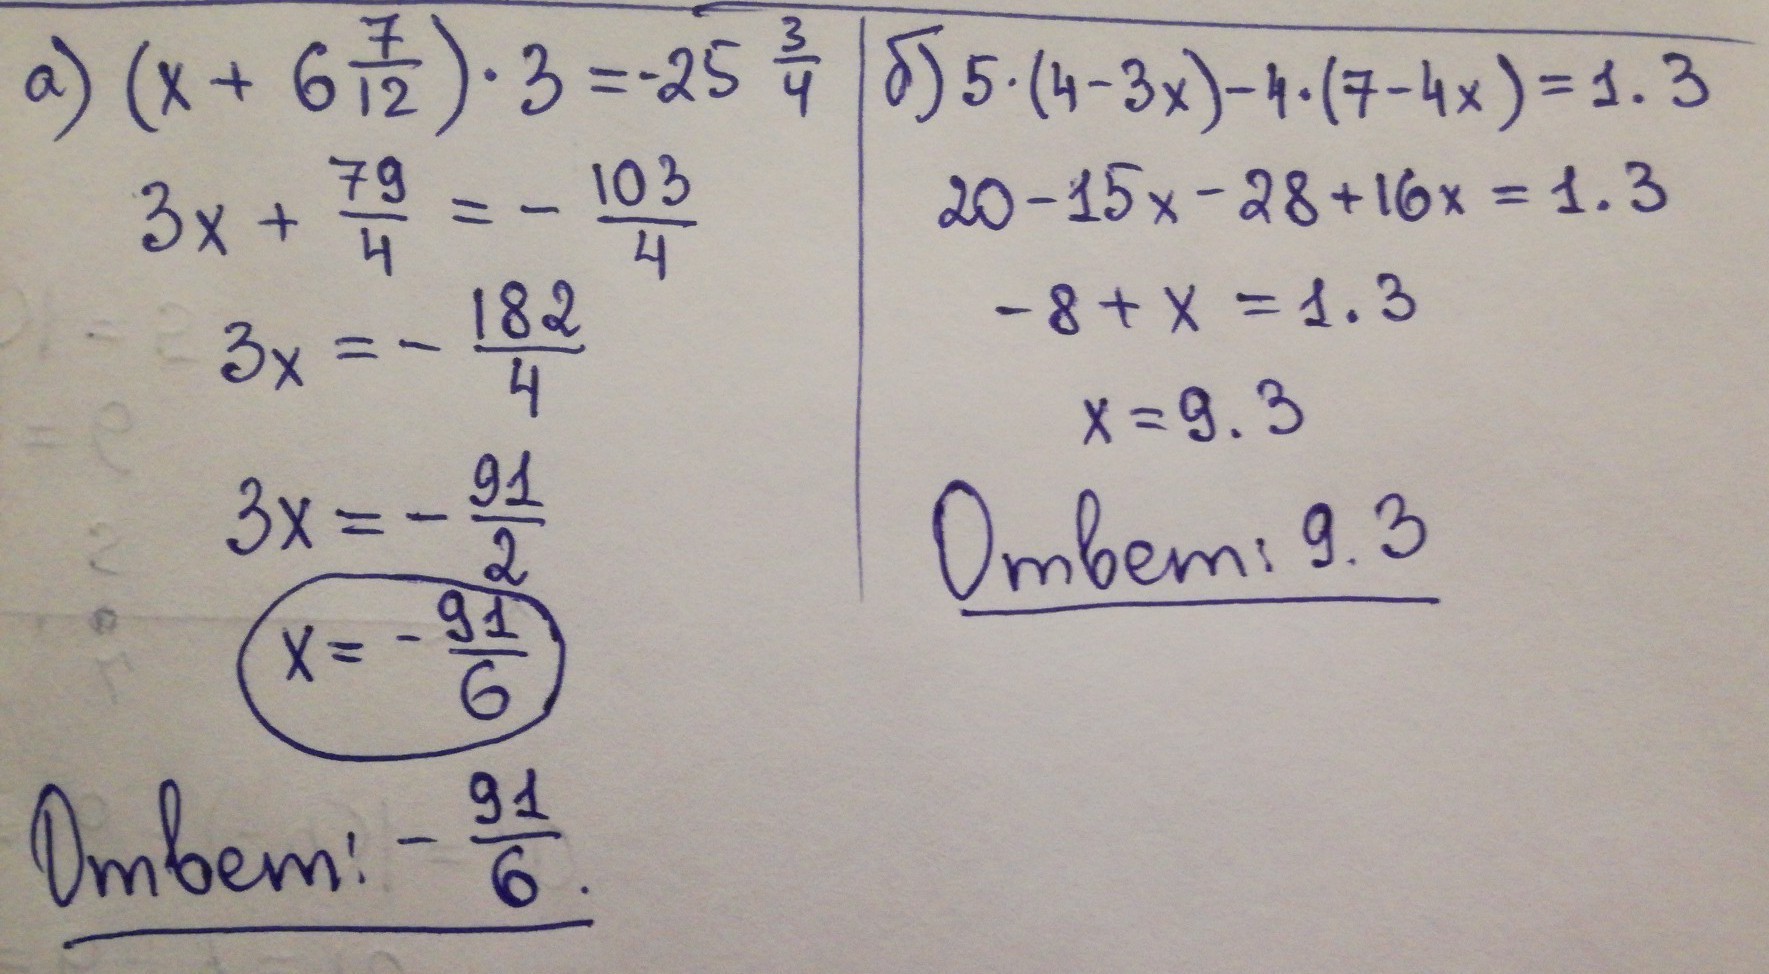 а) (x + 6 7/12) · 3 = -25 3/4
3x + 79/4 = - 103/4
3x = - 182/4
3x = - 91/2
x = - 91/6
Ответ: - 91/6.
б) 5·(4-3x)-4·(7-4x) = 1.3
20-15x-28+16x = 1.3
-8 + x = 1.3
x = 9.3
Ответ: 9.3